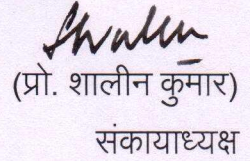 (प्रो. शालीन कुमार)
संकायाध्यक्ष